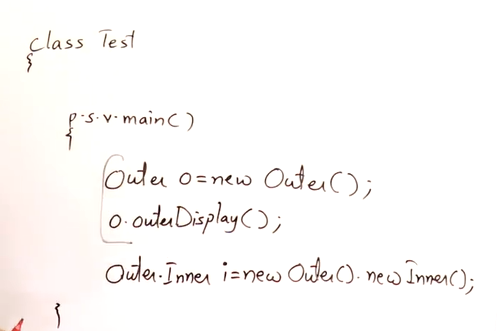 class Test
{
p.s.v.main()
{
Outer o=new Outer();
o.outerDisplay();
Outer.Inner i=new Outer().new Inner();
}